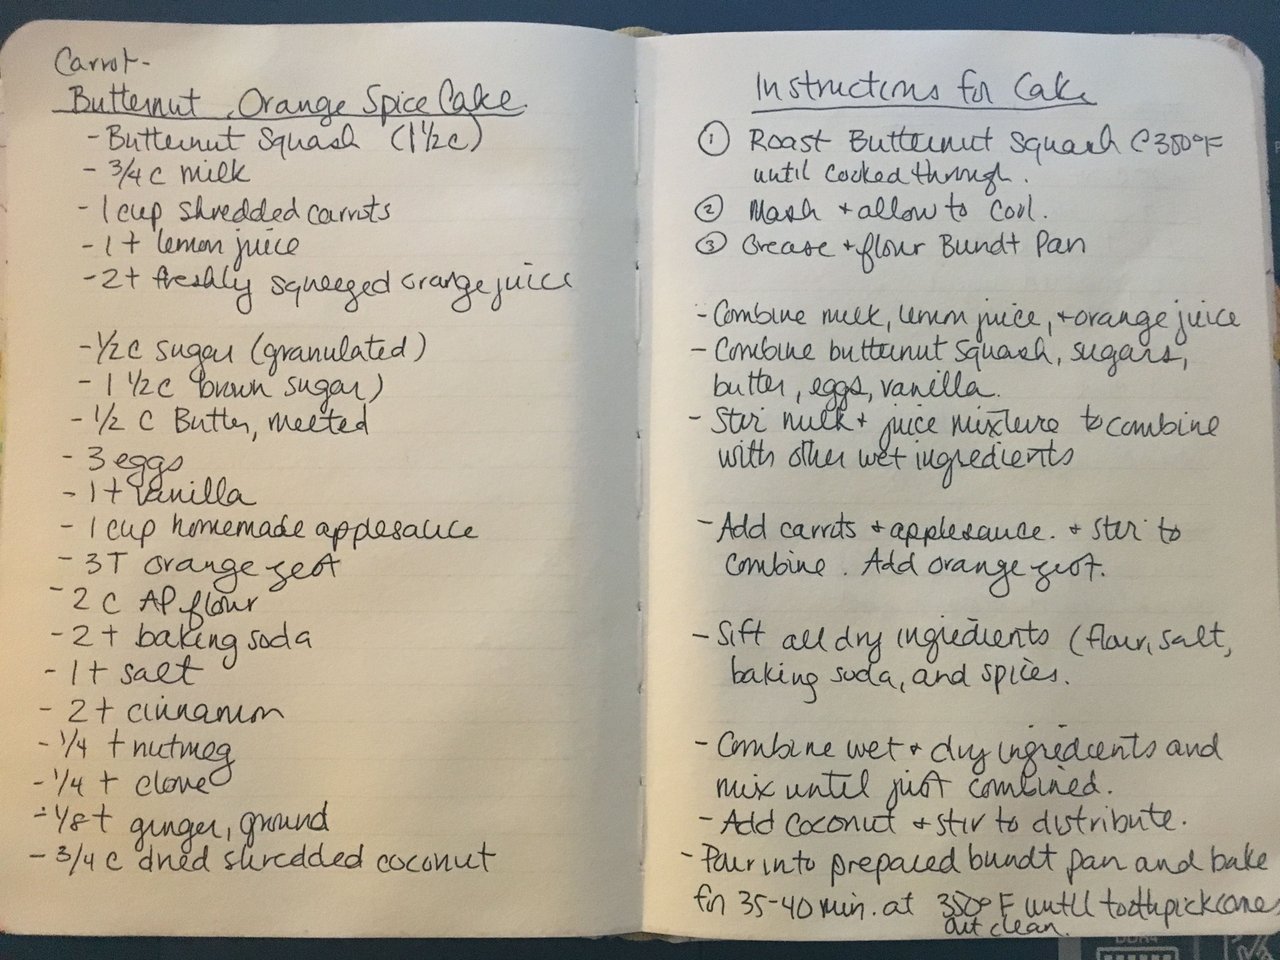 Carrot-
Butternut Orange Spice Cake
- Butternut Squash (1 1/2 c)
- 3/4 c milk
- 1 cup shredded carrots
- 1 t lemon juice
- 2 t freshly squeezed orange juice
- 1/2 c sugar (granulated)
- 1 1/2 c brown sugar)
- 1/2 c Butter, melted
- 3 eggs
- 1 t vanilla
- 1 cup homemade applesauce
- 3T orange zest
- 2 c AP flour
- 2 t baking soda
- 1 t salt
- 2 t cinnamon
- 1/4 t nutmeg
- 1/4 t clove
- 1/8 t ginger, ground
- 3/4 c dried shredded coconut
Instructions for Cake
① Roast Butternut Squash @ 350°F
until cooked through.
② Mash + allow to cool.
③ Grease + flour Bundt Pan
- Combine milk, lemon juice, + orange juice
- Combine butternut squash, sugars,
butter, eggs, vanilla.
- Stir milk + juice mixture to combine
with other wet ingredients
- Add carrots + applesauce. + stir to
combine. Add orange zest.
- Sift all dry ingredients (flour, salt,
baking soda, and spices.
- Combine wet + dry ingredients and
mix until just combined.
- Add coconut + stir to distribute.
- Pour into prepared bundt pan and bake
for 35-40 min. at 350°F until toothpick comes
out clean.
DDR4